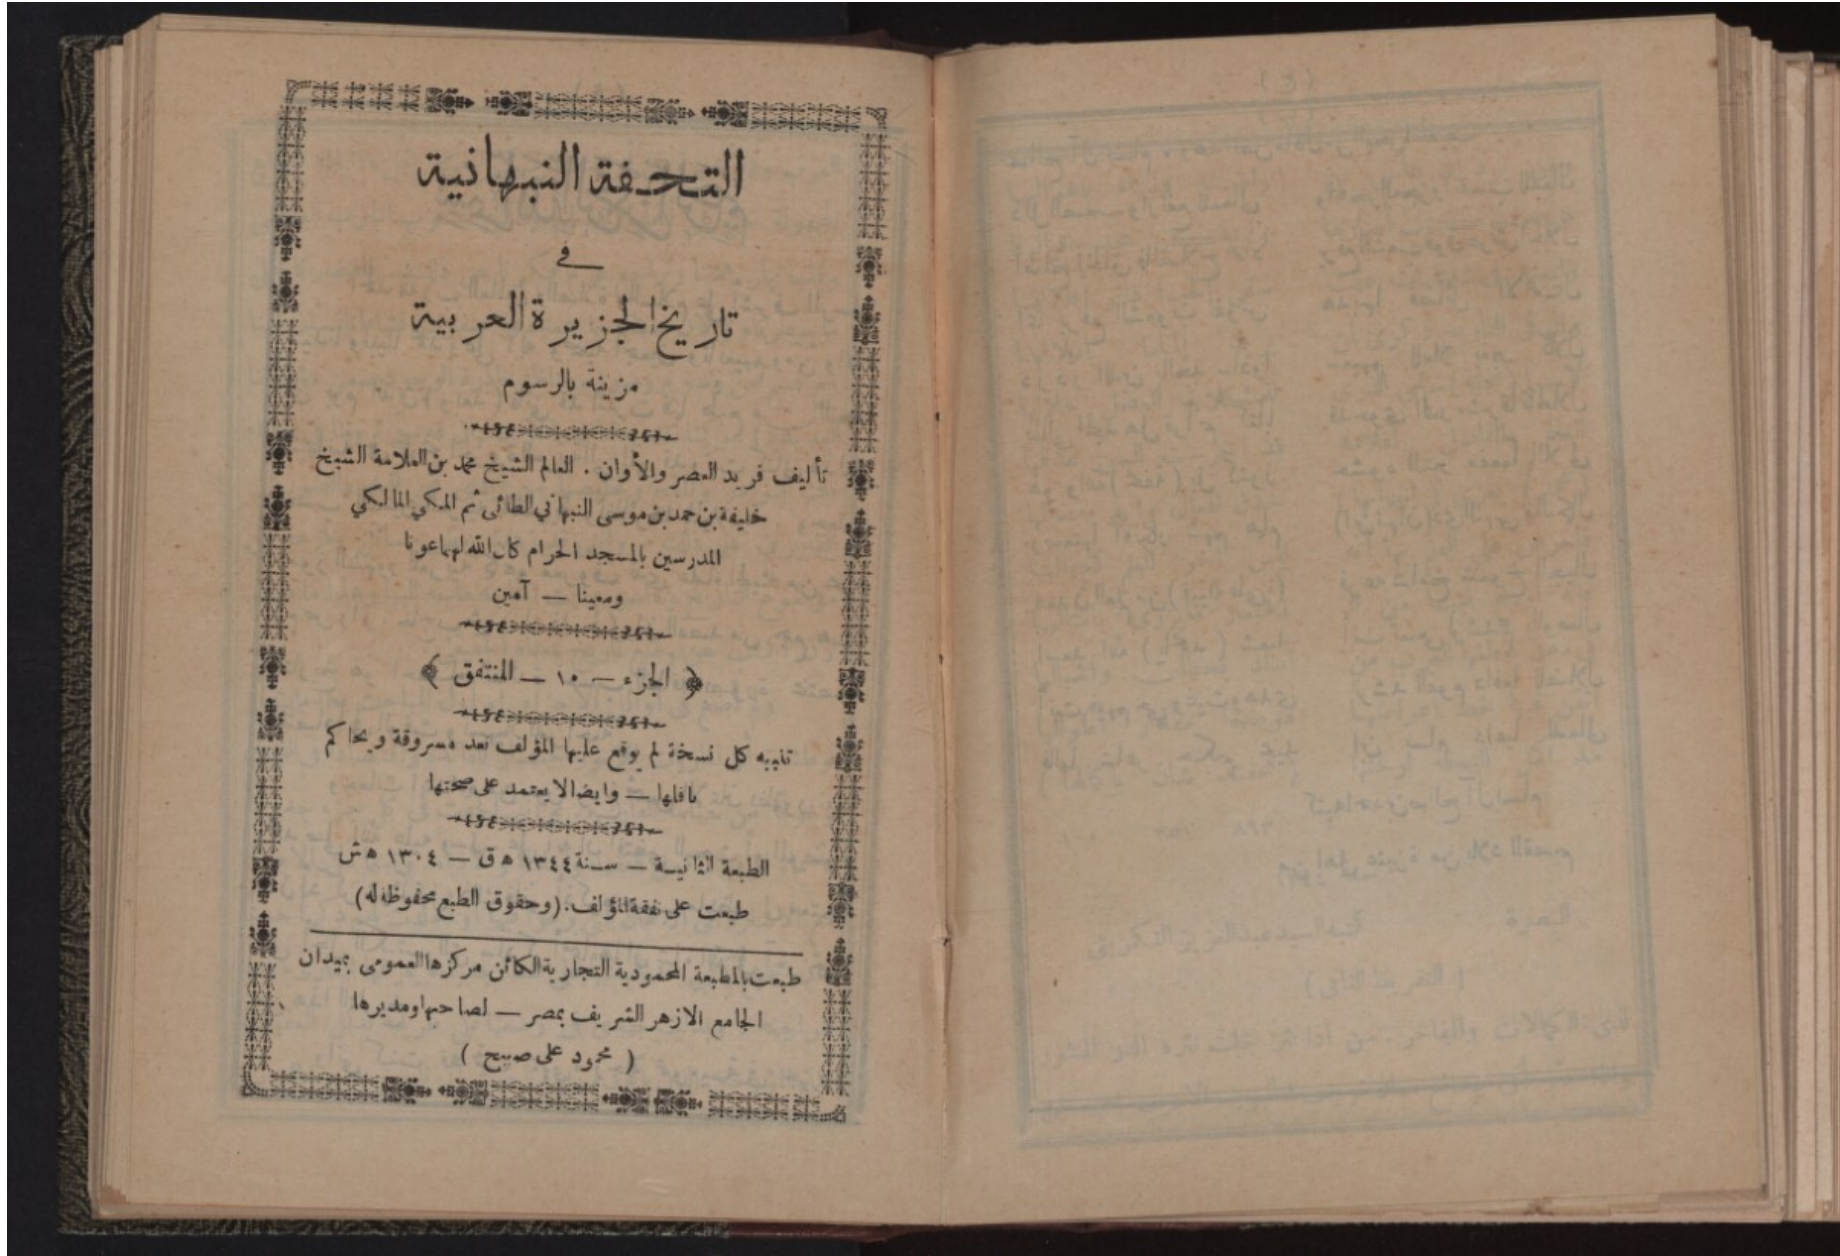 التحفة النبهانية
في
تاريخ الجزيرة العربية
مزينة بالرسوم
تأليف فريد العصر والأوان . العالم الشيخ محمد بن العلامة الشيخ
خليفة بن حمد بن موسى النبهاني الطائى ثم المكي المالكي
المدرسين بالمسجد الحرام كان الله لهما عونا
ومعينا — آمين
﴿ الجزء — ١٠ — المنتفق ﴾
تنبيه كل نسخة لم يوقع عليها المؤلف تعد مسروقة ويحاكم
ناقلها — وايضا لا يعتمد على صحتها
الطبعة الثانية — سنة ١٣٤٤ ه ق — ١٣٠٤ ه ش
طبعت على نفقة المؤلف. (وحقوق الطبع محفوظة له)
طبعت بالمطبعة المحمودية التجارية الكائن مركزها العمومى بميدان
الجامع الازهر الشريف بمصر — لصاحبها ومديرها
( محمود على صبيح )